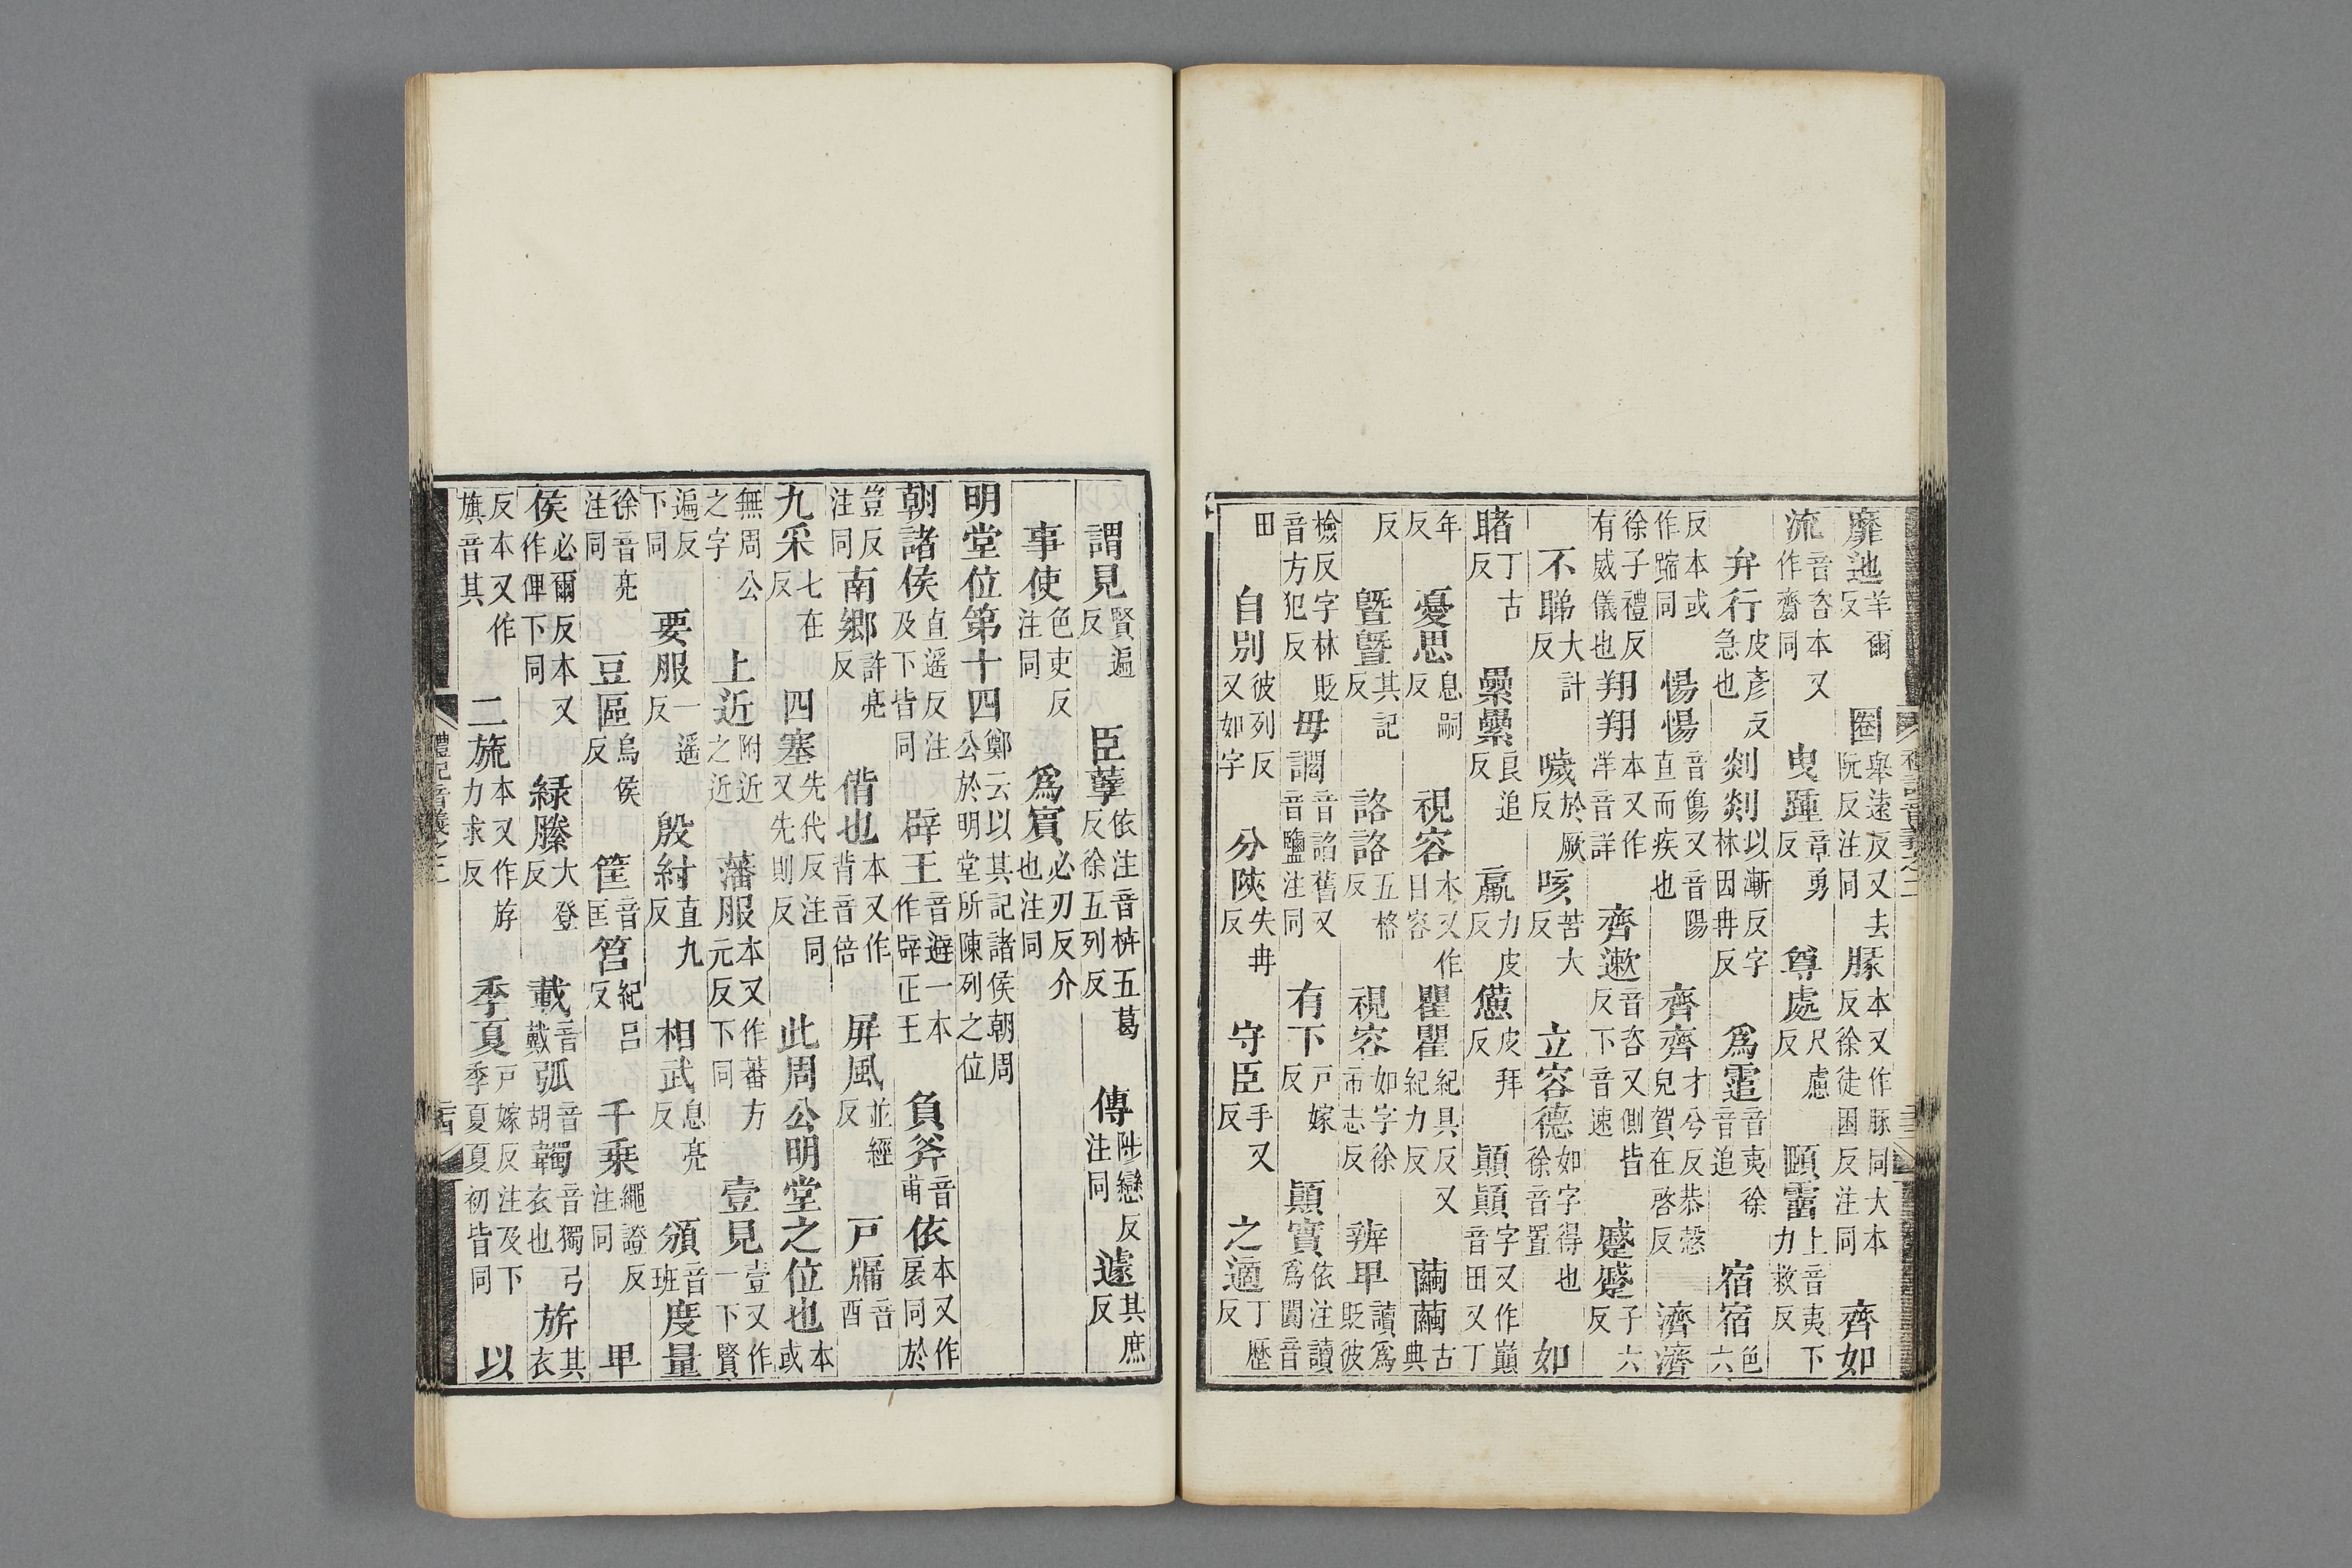 靡迆羊爾反圈舉遠反又去阮反注同豚本又作豚同大本反徐徒困反注同齊如
流音咨本又作齋同曳踵章勇反尊處尺慮反頤霤上音夷下力救反
弁行皮彥反急也剡剡以漸反字林因冉反爲霆音夷徐音追宿宿色六
反本或作蹜同惕惕音傷又音陽直而疾也齊齊才兮反恭慤皃賀在啓反濟濟
徐子禮反有威儀也翔翔本又作洋音詳齊遬音咨又側皆反下音速蹙蹙子六反
不睇大計反噦於厥反咳苦大反立容德如字得也徐音置如
睹丁古反纍纍良追反羸力皮反憊皮拜反顚顚字又作巓音田又丁
年反憂思息嗣反視容本又作目容瞿瞿紀具反又紀力反繭繭古典
反曁曁其記反詻詻五格反視容如字徐市志反辨卑讀爲貶彼
檢反字林貶音方犯反毋讇音諂舊又音鹽注同有下戶嫁反顚實依注讀爲闐音
田自別彼列反又如字分陝失冉反守臣手又反之適丁歷反
謂見賢遍反臣孽依注音枿五葛反徐五列反傳陟戀反注同遽其庶反
事使色吏反注同爲賓必刃反介也注同
明堂位第十四鄭云以其記諸侯朝周公於明堂所陳列之位
朝諸侯直遥反注及下皆同辟王音避一本作辟正王負斧音甫依本又作扆同於
豈反注同南鄉許亮反偝也本又作背音倍屏風並經反戶牖音酉
九采七在反四塞先代反注同又先則反此周公明堂之位也本或
無周公之字上近附近之近藩服本又作蕃方元反下同壹見壹又作一下賢
遍反下同要服一遥反殷紂直九反相武息亮反頒音班度量
徐音亮注同豆區烏侯反筐音匡筥紀呂反千乘繩證反注同卑
侯必爾反本又作俾下同緑縢大登反載音戴弧音胡韣音獨弓衣也旂其衣
反本又作旗音其二旒本又作斿力求反季夏戶嫁反注及下季夏夏初皆同以
禮記音義之二